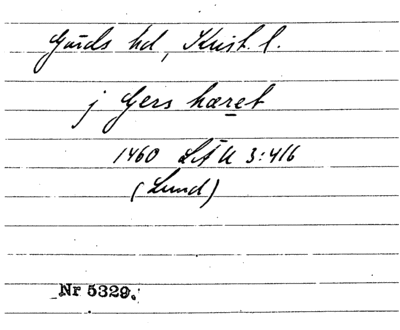 Gärds hd, Krist. l.
j Gers hæret
1460 LÄU 3:416
(Lund)
Nr 5329.